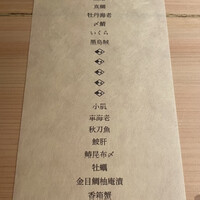 真鯛
牡丹海老
〆鯖
いくら
墨烏賊
小肌
車海老
秋刀魚
鮟肝
鰆昆布〆
牡蠣
金目鯛柚庵漬
香箱蟹